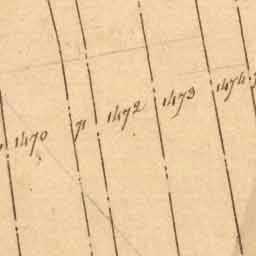 1470
71
1472
1473
1474